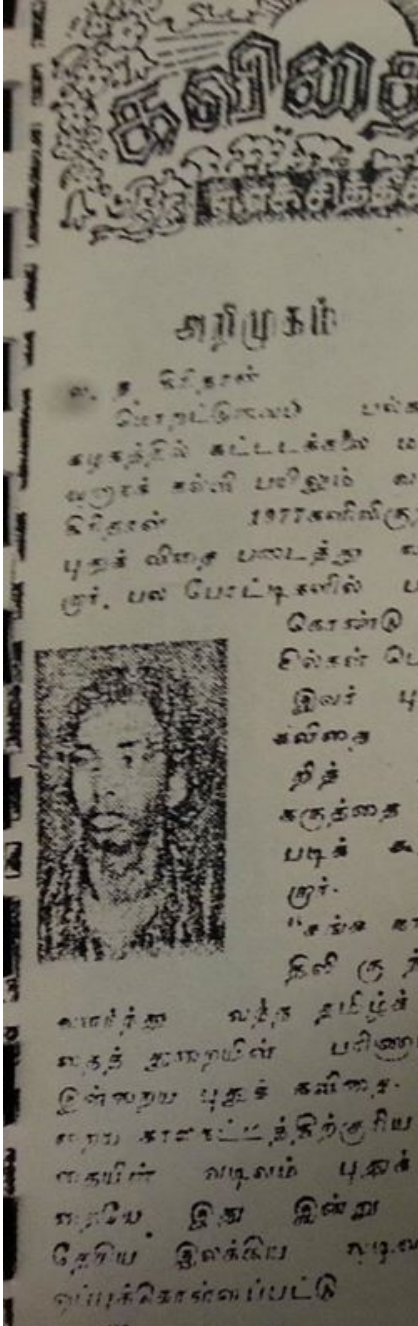 கவிதை
அறிமுகம்
வ. ந. கிரிதரன்
மொறட்டுவைப் பல்க
கழகத்தில் கட்டடக்கலை மா
வனாகக் கல்வி பயிலும் வ.
கிரிதரன் 1977களிலிருந்
புதுக் விதை படைத்து வ
றார். பல போட்டிகளில் ப
கொண்டு
சில்கள் பெ
இவர் பு
கவிதை
றித்
கருத்தை
படிக் கூ
றார்.
"சங்க கா
வளர்ந்து வந்த தமிழ்க்
தைத் துறையின் பரிணா
இன்றைய புதுக் கவிதை.
றைய காலகட்டத்திற்குரிய
தையின் வடிவம் புதுக்
தையே. இது இன்று
தேரிய இலக்கிய வடிவ
ஒப்புக்கொள்ளப்பட்டு